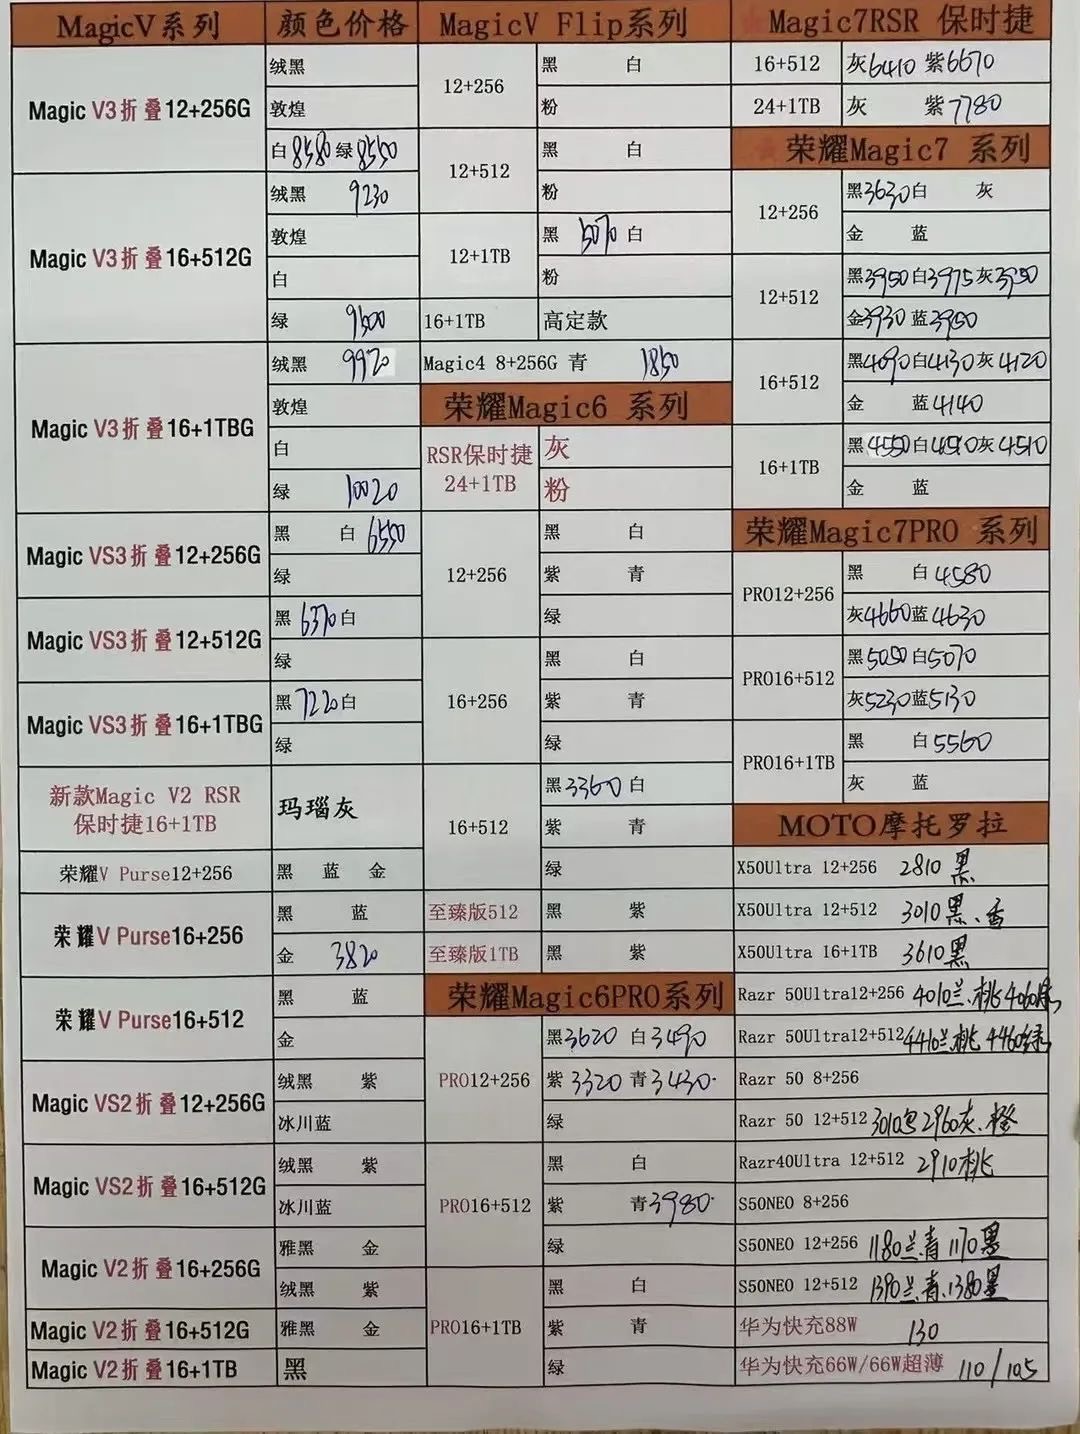 MagicV系列 颜色价格
Magic V3折叠12+256G
绒黑
敦煌
白8580 绿8550
Magic V3折叠16+512G
绒黑 9230
敦煌
白
绿
Magic V3折叠16+1TBG
绒黑 9920
敦煌
白
绿 10020
Magic VS3折叠12+256G
黑 白6550
绿
Magic VS3折叠12+512G
黑6370白
绿
Magic VS3折叠16+1TBG
黑7220白
绿
新款Magic V2 RSR
保时捷16+1TB
玛瑙灰
荣耀V Purse12+256
黑 蓝 金
荣耀V Purse16+256
黑 蓝
金 3820
荣耀V Purse16+512
黑 蓝
金
Magic VS2折叠12+256G
绒黑 紫
冰川蓝
Magic VS2折叠16+512G
绒黑 紫
冰川蓝
Magic V2折叠16+256G
雅黑 金
绒黑 紫
Magic V2折叠16+512G
雅黑 金
Magic V2折叠16+1TB
黑
MagicV Flip系列
12+256
黑 白
粉
12+512
黑 白
粉
12+1TB
黑 5070 白
粉
16+1TB 高定款
Magic4 8+256G 青 1850
荣耀Magic6 系列
RSR保时捷
24+1TB
灰
粉
12+256
黑 白
紫 青
绿
16+256
黑 白
紫 青
绿
16+512
黑3360白
紫 青
绿
至臻版512 黑 紫
至臻版1TB 黑 紫
荣耀Magic6PRO系列
PRO12+256
黑3620 白3490
紫3320 青3430
绿
PRO16+512
黑 白
紫 青3980
绿
PRO16+1TB
黑 白
紫 青
绿
Magic7RSR 保时捷
16+512 灰6410 紫6670
24+1TB 灰 紫7780
荣耀Magic7 系列
12+256
黑3630白 灰
金 蓝
12+512
黑3950白3975灰3950
金3930 蓝3950
16+512
黑4090白4130灰4120
金 蓝4140
16+1TB
黑4550白4510灰4510
金 蓝
荣耀Magic7PRO 系列
PRO12+256
黑 白4580
灰4660蓝4630
PRO16+512
黑5050白5070
灰5230蓝5130
PRO16+1TB
黑 白5560
灰 蓝
MOTO摩托罗拉
X50Ultra 12+256 2810 黑
X50Ultra 12+512 3010黑、杏
X50Ultra 16+1TB 3610黑
Razr 50Ultra12+256 4010兰.桃4060
Razr 50Ultra12+512 4410兰.桃 4460绿
Razr 50 8+256
Razr 50 12+512 3010 2960灰.橙
Razr40Ultra 12+512 2910桃
S50NEO 8+256
S50NEO 12+256 1180兰.青 1170黑
S50NEO 12+512 1390兰.青.1380黑
华为快充88W 130
华为快充66W/66W超薄 110/105